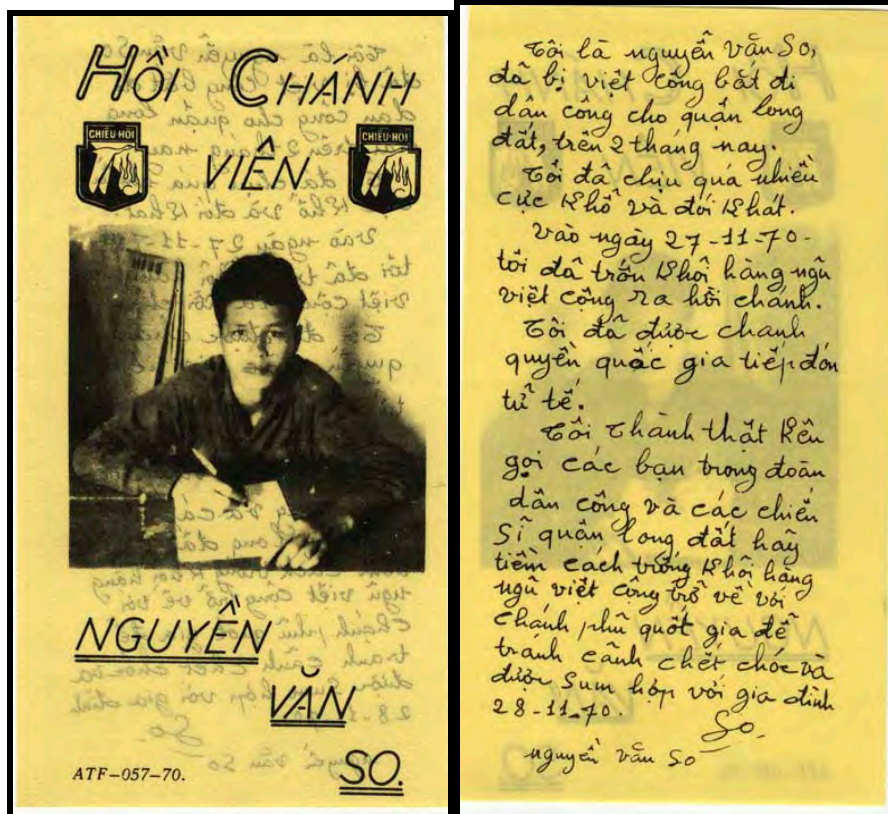 HỒI CHÁNH
CHIÊU-HỒI
CHIÊU-HỒI
VIÊN
NGUYỄN
VĂN
SO.
ATF-057-70.
Tôi là nguyễn văn So,
đã bị việt cộng bắt đi
dân công cho quận long
đất, trên 2 tháng nay.
Tôi đã chịu quá nhiều
cực khổ và đói khát.
Vào ngày 27-11-70-
tôi đã trốn khỏi hàng ngũ
việt cộng ra hồi chánh.
Tôi đã được chanh
quyền quốc gia tiếp đón
tử tế.
Tôi thành thật kêu
gọi các bạn trong đoàn
dân công và các chiến
sĩ quận long đất hãy
tiềm cách khỏi hàng
ngũ việt cộng trở về với
chánh phủ quốt gia để
tránh cảnh chết chóc và
được sum hợp với gia đình
28-11-70.
So
nguyễn văn So